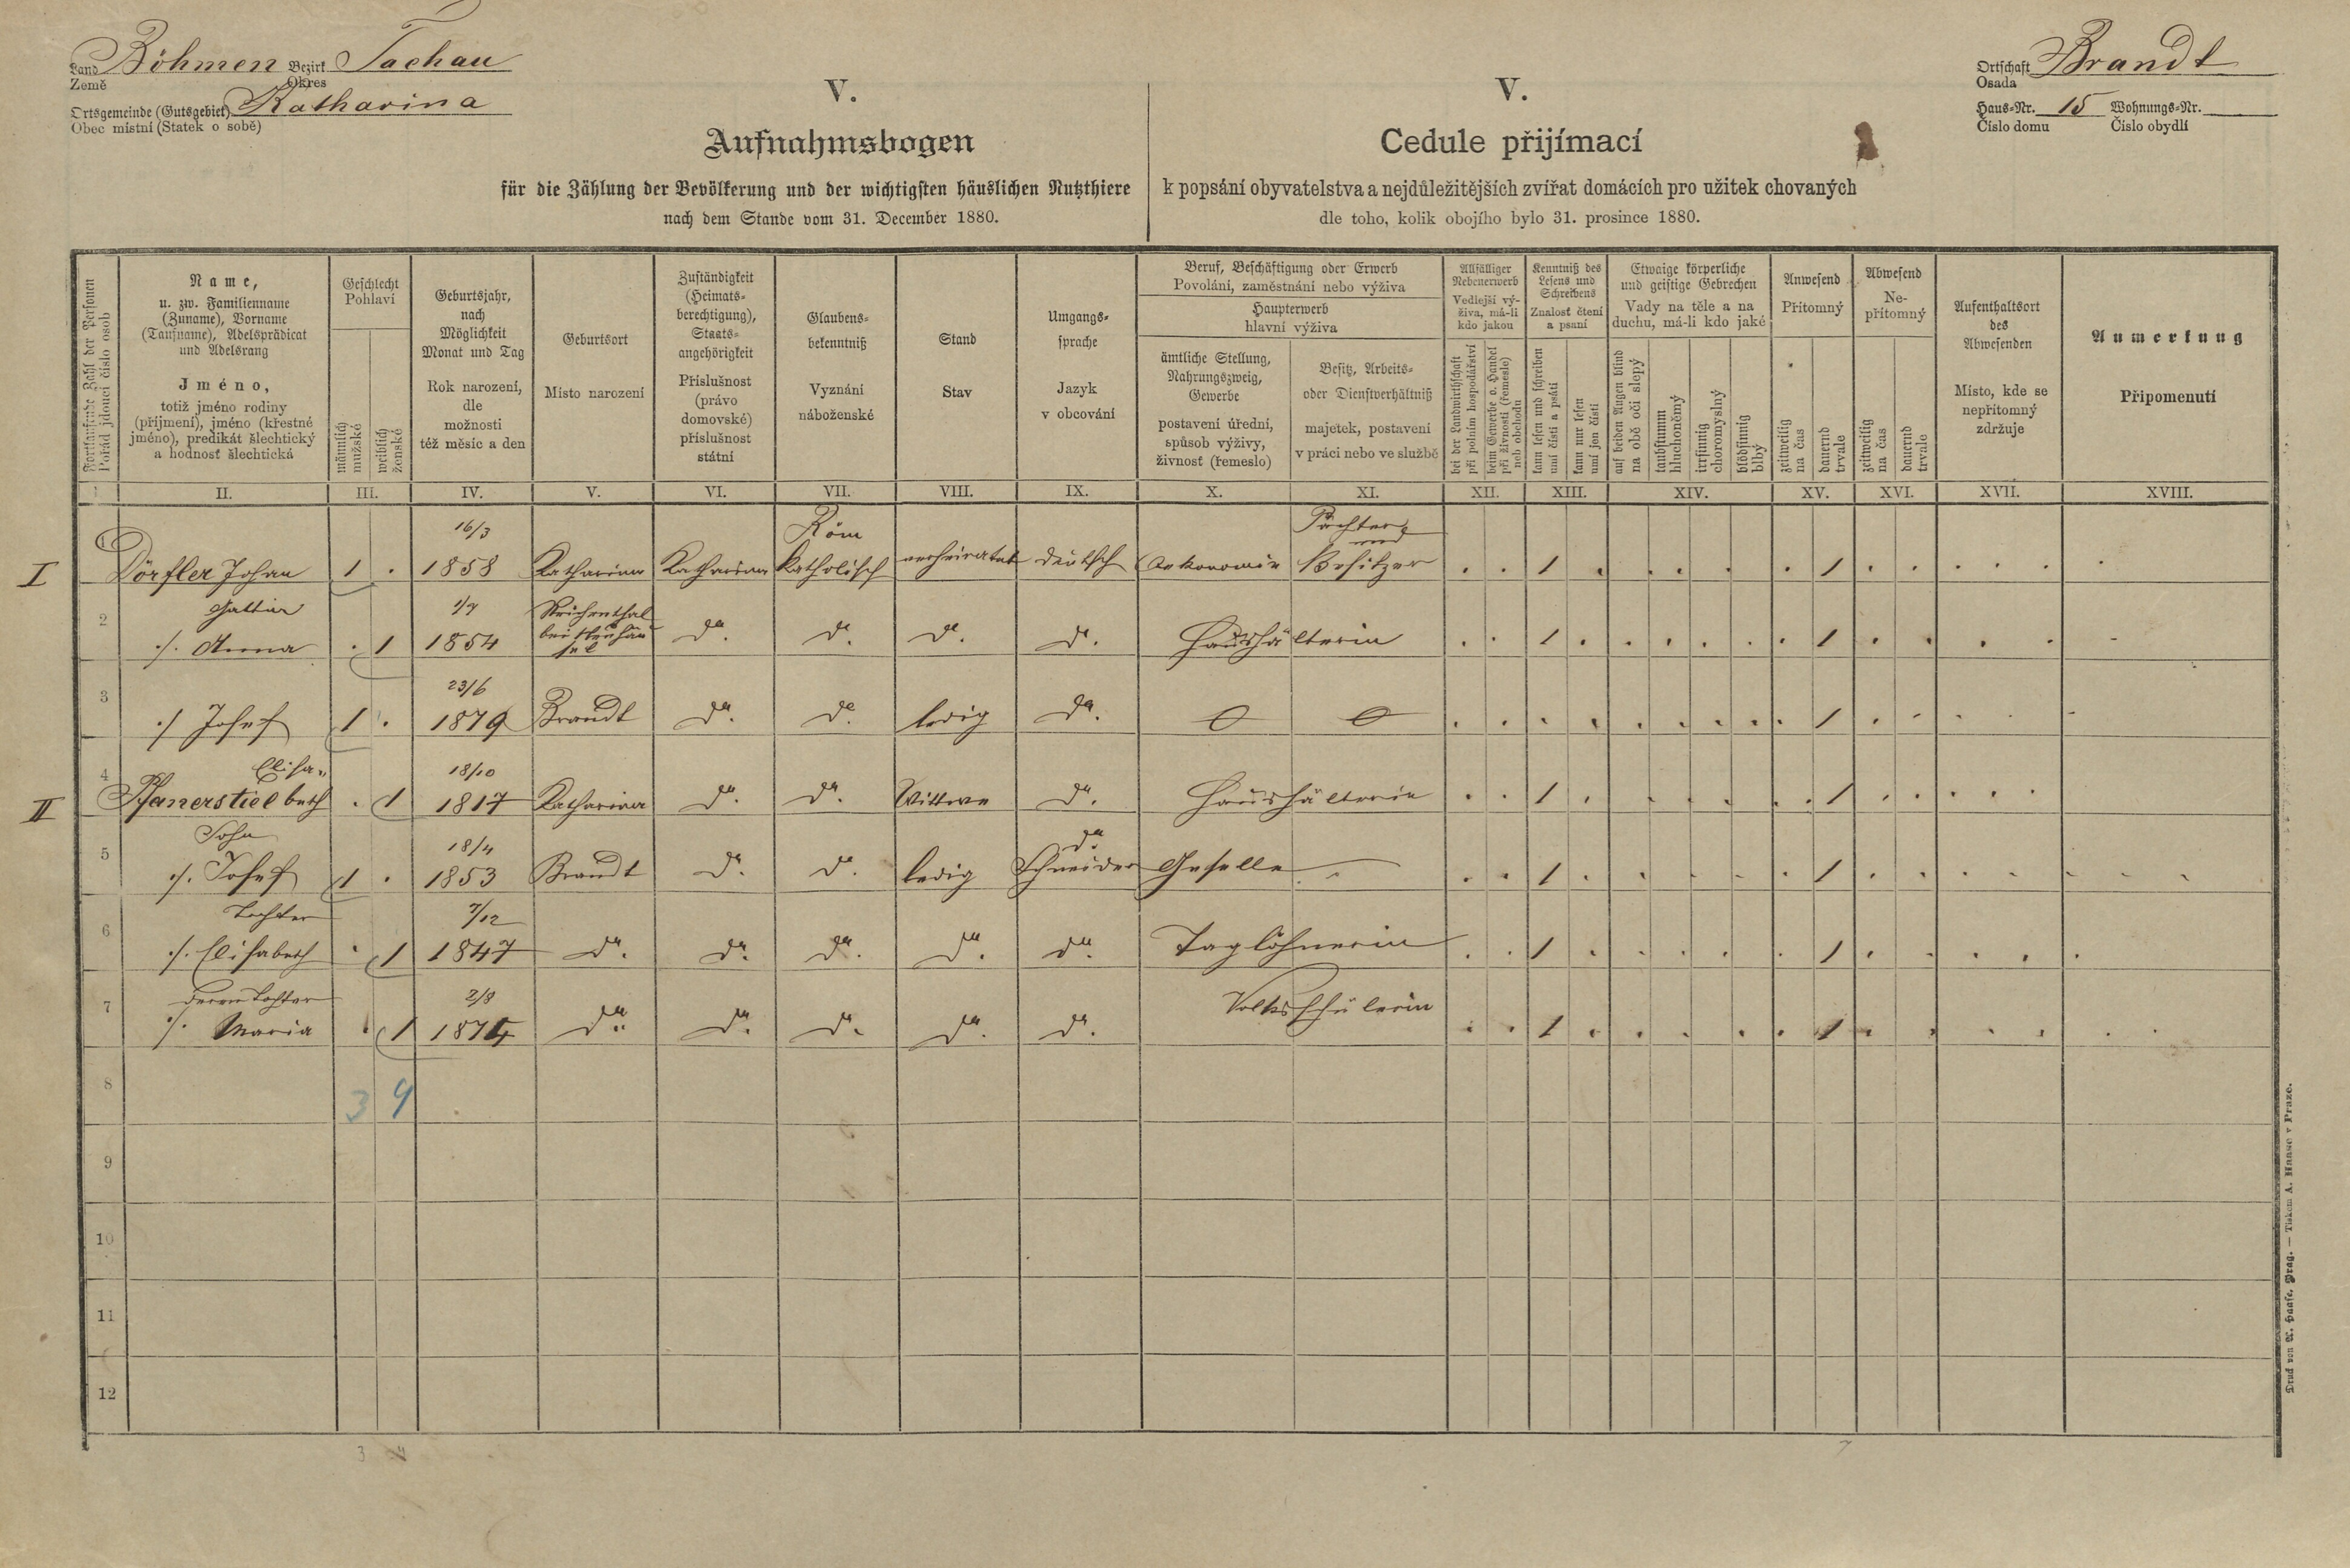 Land Böhmen Bezirk Tachau
Země Okres
Ortsgemeinde (Gutsgebiet) Katharina
Obec místní (Statek o sobě)
Ortschaft Brandt
Osada
Haus-Nr. 15 Wohnungs-Nr.
Číslo domu Číslo obydlí
V.
Aufnahmsbogen
für die Zählung der Bevölkerung und der wichtigsten häuslichen Nutzthiere
nach dem Stande vom 31. December 1880.
V.
Cedule přijímací
k popsání obyvatelstva a nejdůležitějších zvířat domácích pro užitek chovaných
dle toho, kolik obojího bylo 31. prosince 1880.
Fortlaufende Zahl der Personen
Pořád jdoucí číslo osob
Name,
u. zw. Familienname
(Zuname), Vorname
(Taufname), Adelsprädicat
und Adelsrang
Jméno,
totiž jméno rodiny
(příjmení), jméno (křestné
jméno), predikát šlechtický
a hodnosť šlechtická
Geschlecht
Pohlaví
männlich
mužské
weiblich
ženské
Geburtsjahr,
nach
Möglichkeit
Monat und Tag
Rok narození,
dle
možnosti
též měsíc a den
Geburtsort
Místo narození
Zuständigkeit
(Heimats-
berechtigung),
Staats-
angehörigkeit
Příslušnost
(právo
domovské)
příslušnost
státní
Glaubens-
bekenntniß
Vyznání
náboženské
Stand
Stav
Umgangs-
sprache
Jazyk
v obcování
Beruf, Beschäftigung oder Erwerb
Povolání, zaměstnání nebo výživa
Haupterwerb
hlavní výživa
ämtliche Stellung,
Nahrungszweig,
Gewerbe
postavení úřední,
spůsob výživy,
živnosť (řemeslo)
Besitz, Arbeits-
oder Dienstverhältniß
majetek, postavení
v práci nebo ve službě
Allfälliger
Nebenerwerb
Vedlejší vý-
živa, má-li
kdo jakou
bei der Landwirthschaft
při polním hospodářství
beim Gewerbe o. Handel
při živnosti (řemesle)
neb obchodu
Kenntniß des
Lesens und
Schreibens
Znalosť čtení
a psaní
kann lesen und schreiben
umí čísti a psáti
kann nur lesen
umí jen čísti
Etwaige körperliche
und geistige Gebrechen
Vady na těle a na
duchu, má-li kdo jaké
auf beiden Augen blind
na obě oči slepý
taubstumm
hluchoněmý
irrsinnig
choromyslný
blödsinnig
blbý
Anwesend
Přítomný
zeitweilig
na čas
dauernd
trvale
Abwesend
Ne-
přítomný
zeitweilig
na čas
dauernd
trvale
Aufenthaltsort
des
Abwesenden
Místo, kde se
nepřítomný
zdržuje
Anmerkung
Připomenutí
I II. III. IV. V. VI. VII. VIII. IX. X. XI. XII. XIII. XIV. XV. XVI. XVII. XVIII.
16/3 Röm Pächter und
I 1 Dörfler Johan 1 . 1858 Katharina Katharina Katholisch verheiratet deutsch Oekonomie Besitzer . . 1 . . . . . 1 . . . . . .
Gattin 1/7 Reichenthal
2 ./. Anna . 1 1854 bei Neuhäu dto. dto. dto. dto. Haushälterin . . 1 . . . . . . 1 . . . . -
sel
23/6
3 ./ Josef 1 . 1879 Brandt dto. dto. ledig dto. 0 0 . . . . . . . . . 1 . . . . -
Elisa- 18/10
II 4 Pfanerstiel beth . 1 1817 Katharina dto. dto. Wittwe dto. Haushälterin . . 1 . . . . . . 1 . . . . .
Sohn 18/4 dto.
5 ./. Josef 1 . 1853 Brandt dto. dto. ledig Schneider Geselle . . 1 . . . . . 1 . . . . . . . .
Tochter 7/12
6 ./. Elisabeth . 1 1847 dto. dto. dto. dto. dto. Taglöhnerin . . 1 . . . . . 1 . . . . .
deren Tochter 2/8
7 ./. Maria . 1 1874 dto. dto. dto. dto. dto. Volksschülerin . . 1 . . . . . 1 . . . . . .
8 3 4
9
10
11
12
3 4 7
Druck von A. Haase, Prag. — Tiskem A. Haase v Praze.